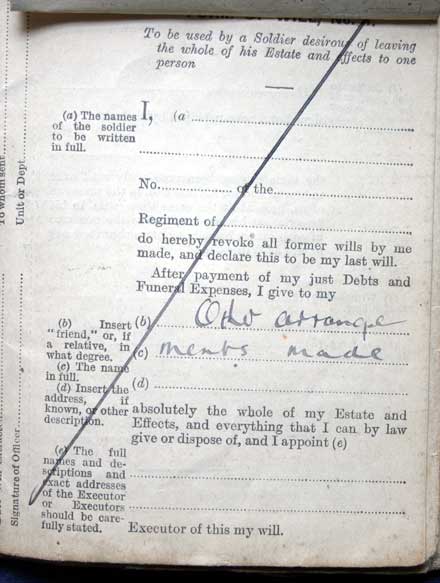 To be used by a Soldier desirous of leaving
the whole of his Estate and Effects to one
person
(a) The names
of the soldier
to be written
in full.
I, (a
No. of the
Regiment of
do hereby revoke all former wills by me
made, and declare this to be my last will.
After payment of my just Debts and
Funeral Expenses, I give to my
(b) Insert
"friend," or, if
a relative, in
what degree.
(c) The name
in full.
(d) Insert the
address, if
known, or other
description.
(b) Other arrange
(c) ments made
(d)
absolutely the whole of my Estate and
Effects, and everything that I can by law
give or dispose of, and I appoint (e)
(e) The full
names and de-
scriptions and
exact addresses
of the Executor
or Executors
should be care-
fully stated.
Executor of this my will.
To whom sent
Unit or Dept.
Signature of Officer